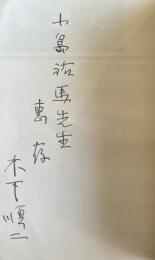 小島祐馬先生
恵存
木下順二